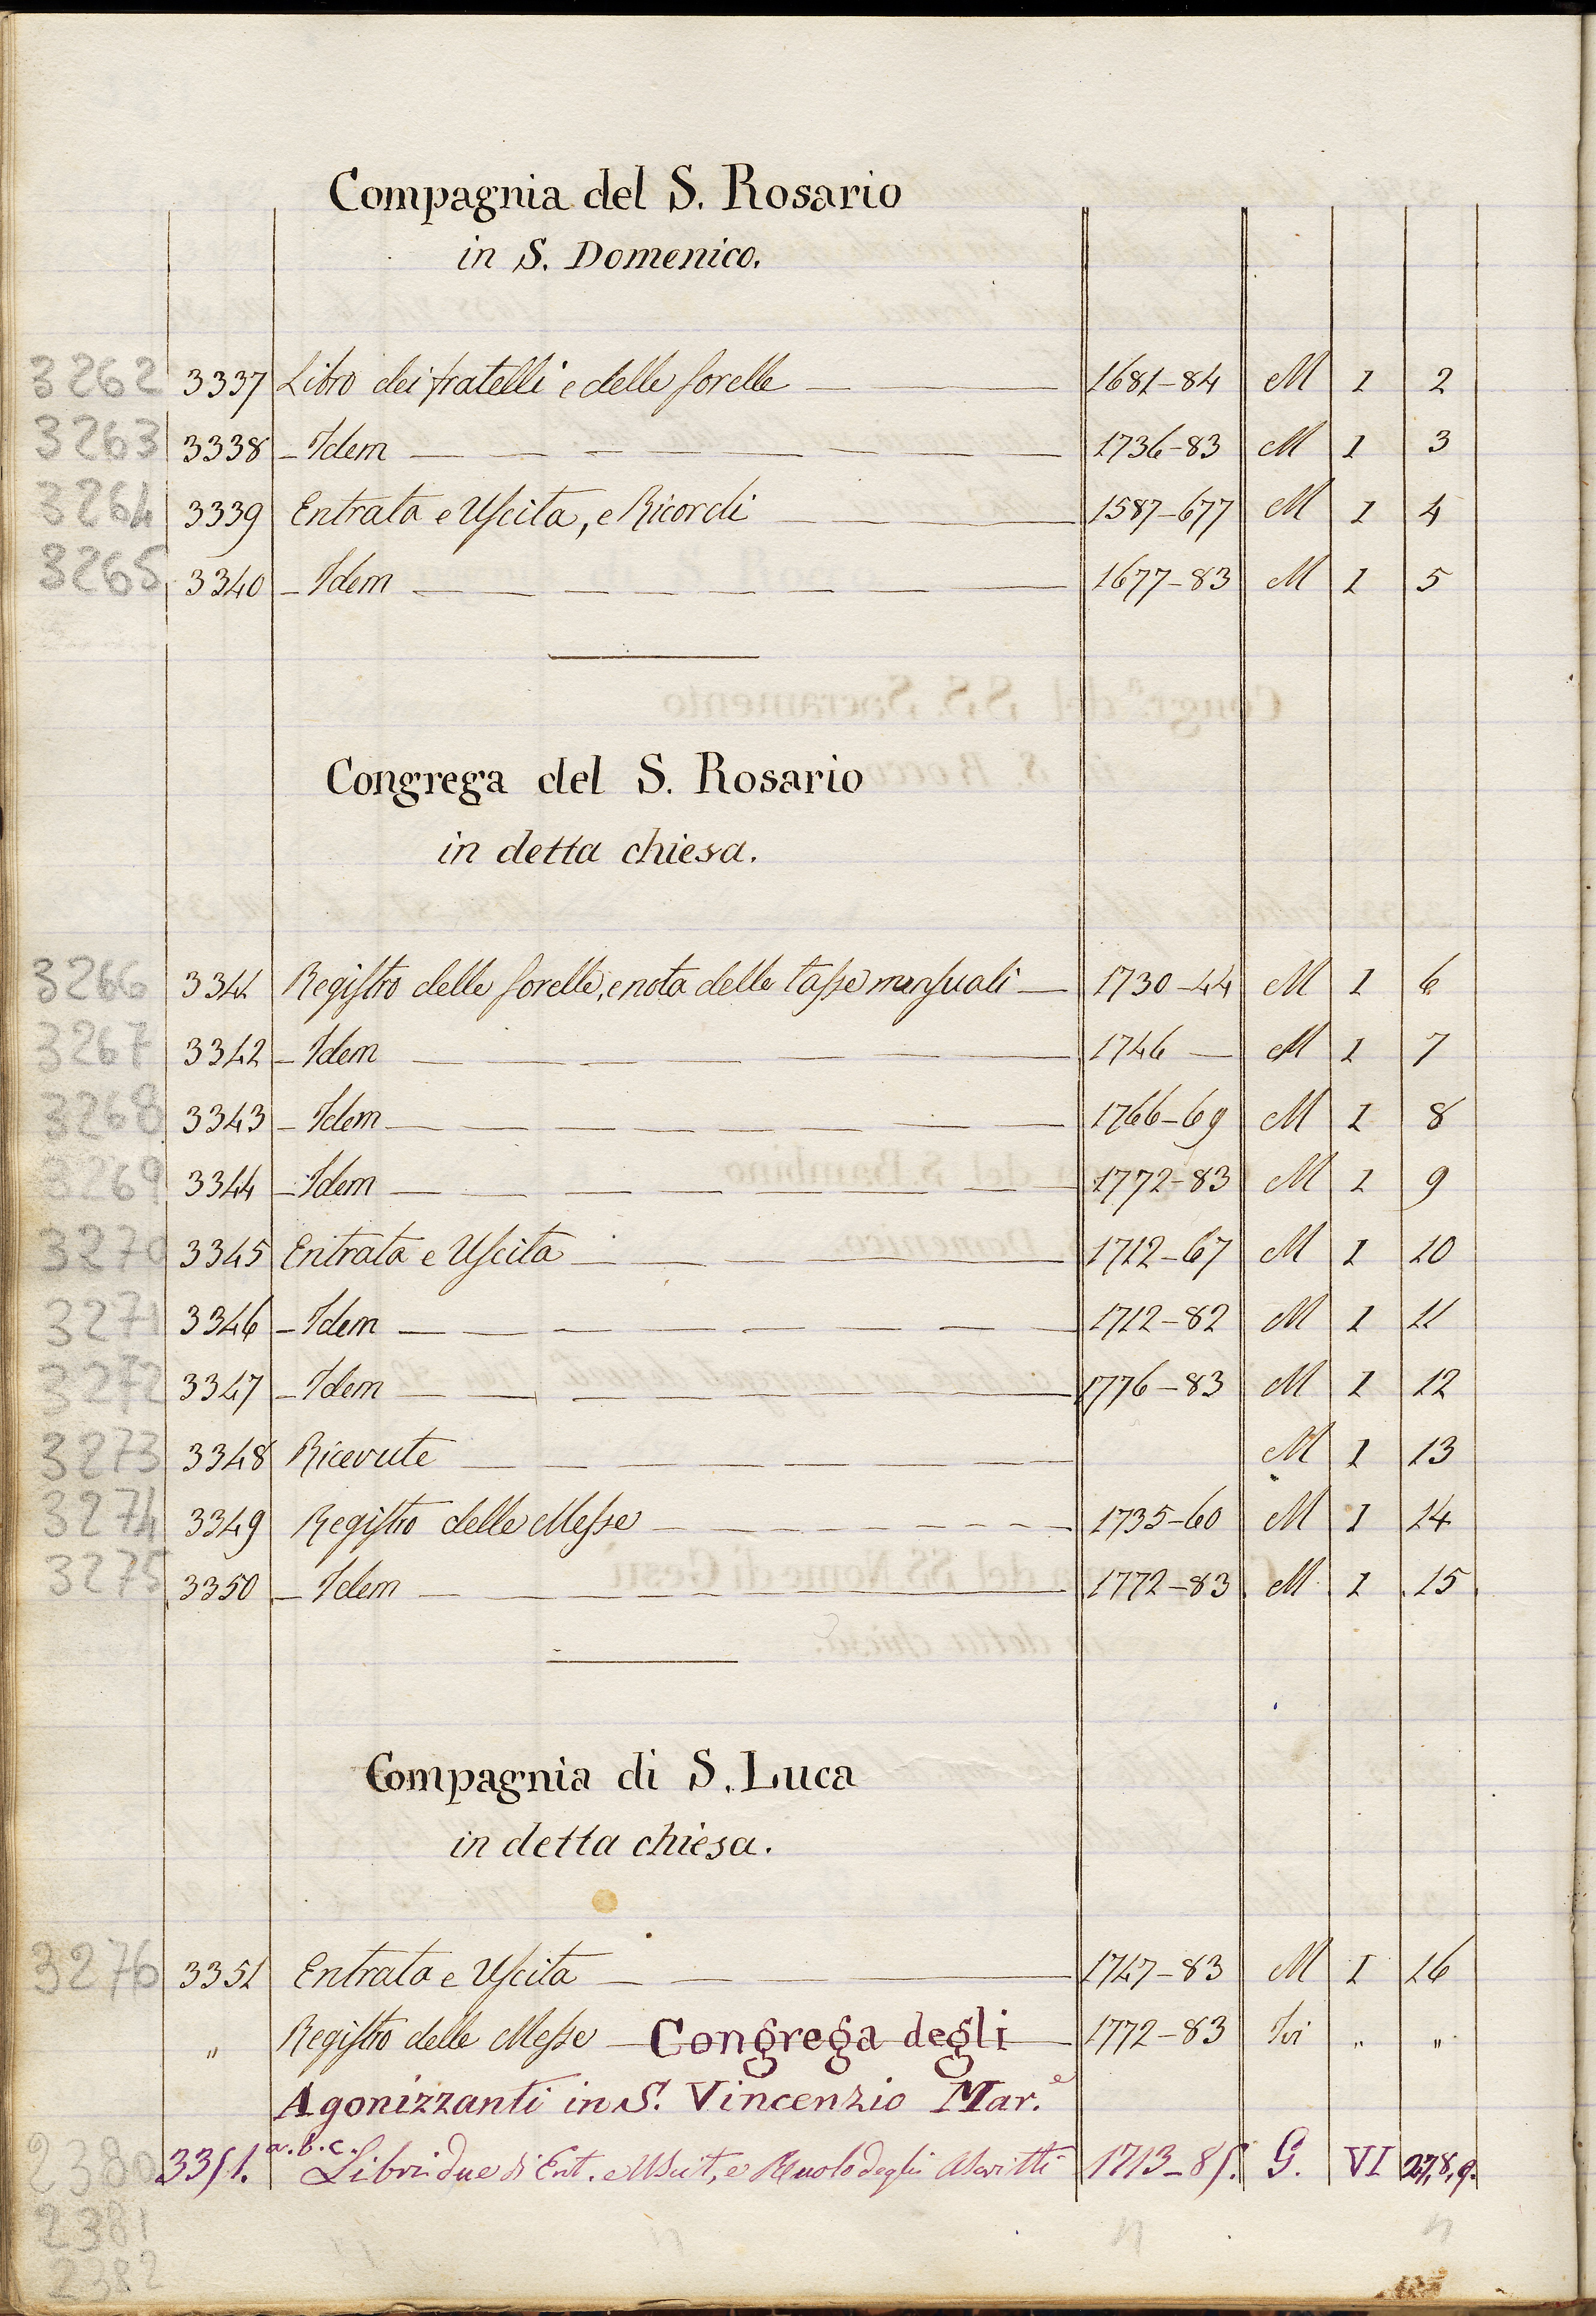 Compagnia del S. Rosario
in S. Domenico.
3262 3337 Libro dei fratelli e delle sorelle — — — 1681-84 M I 2
3263 3338 - Idem — — — — — — — — 1736-83 M I 3
3264 3339 Entrata e Uscita, e Ricordi — — — 1587-677 M I 4
3265 3340 - Idem — — — — — — — — 1677-83 M I 5
Congrega del S. Rosario
in detta chiesa.
3266 3341 Registro delle sorelle, e nota delle tasse mensuali — 1730-44 M I 6
3267 3342 - Idem — — — — — 1746 — M I 7
3268 3343 - Idem — — — — — — — — 1766-69 M I 8
3269 3344 - Idem — — — — — — — — 1772-83 M I 9
3270 3345 Entrata e Uscita — — — — 1712-67 M I 10
3271 3346 - Idem — — — — — — — — 1712-82 M I 11
3272 3347 - Idem — — — — — — — 1776-83 M I 12
3273 3348 Ricevute — — — — — — — — M I 13
3274 3349 Registro delle Messe — — — — — — — — 1735-60 M I 14
3275 3350 - Idem — — — — — — — 1772-83 M I 15
Compagnia di S. Luca
in detta chiesa.
3276 3351 Entrata e Uscita — — — 1747-83 M I 16
" Registro delle Messe — Congrega degli — 1772-83 Ivi " "
Agonizzanti in S. Vincenzio Mar.e
2380 3351. a.b.c. Libri due di Ent. e Uscit, e Ruolo degli Ascritti 1713-85. G. VI 27,8,9.
2381
2382